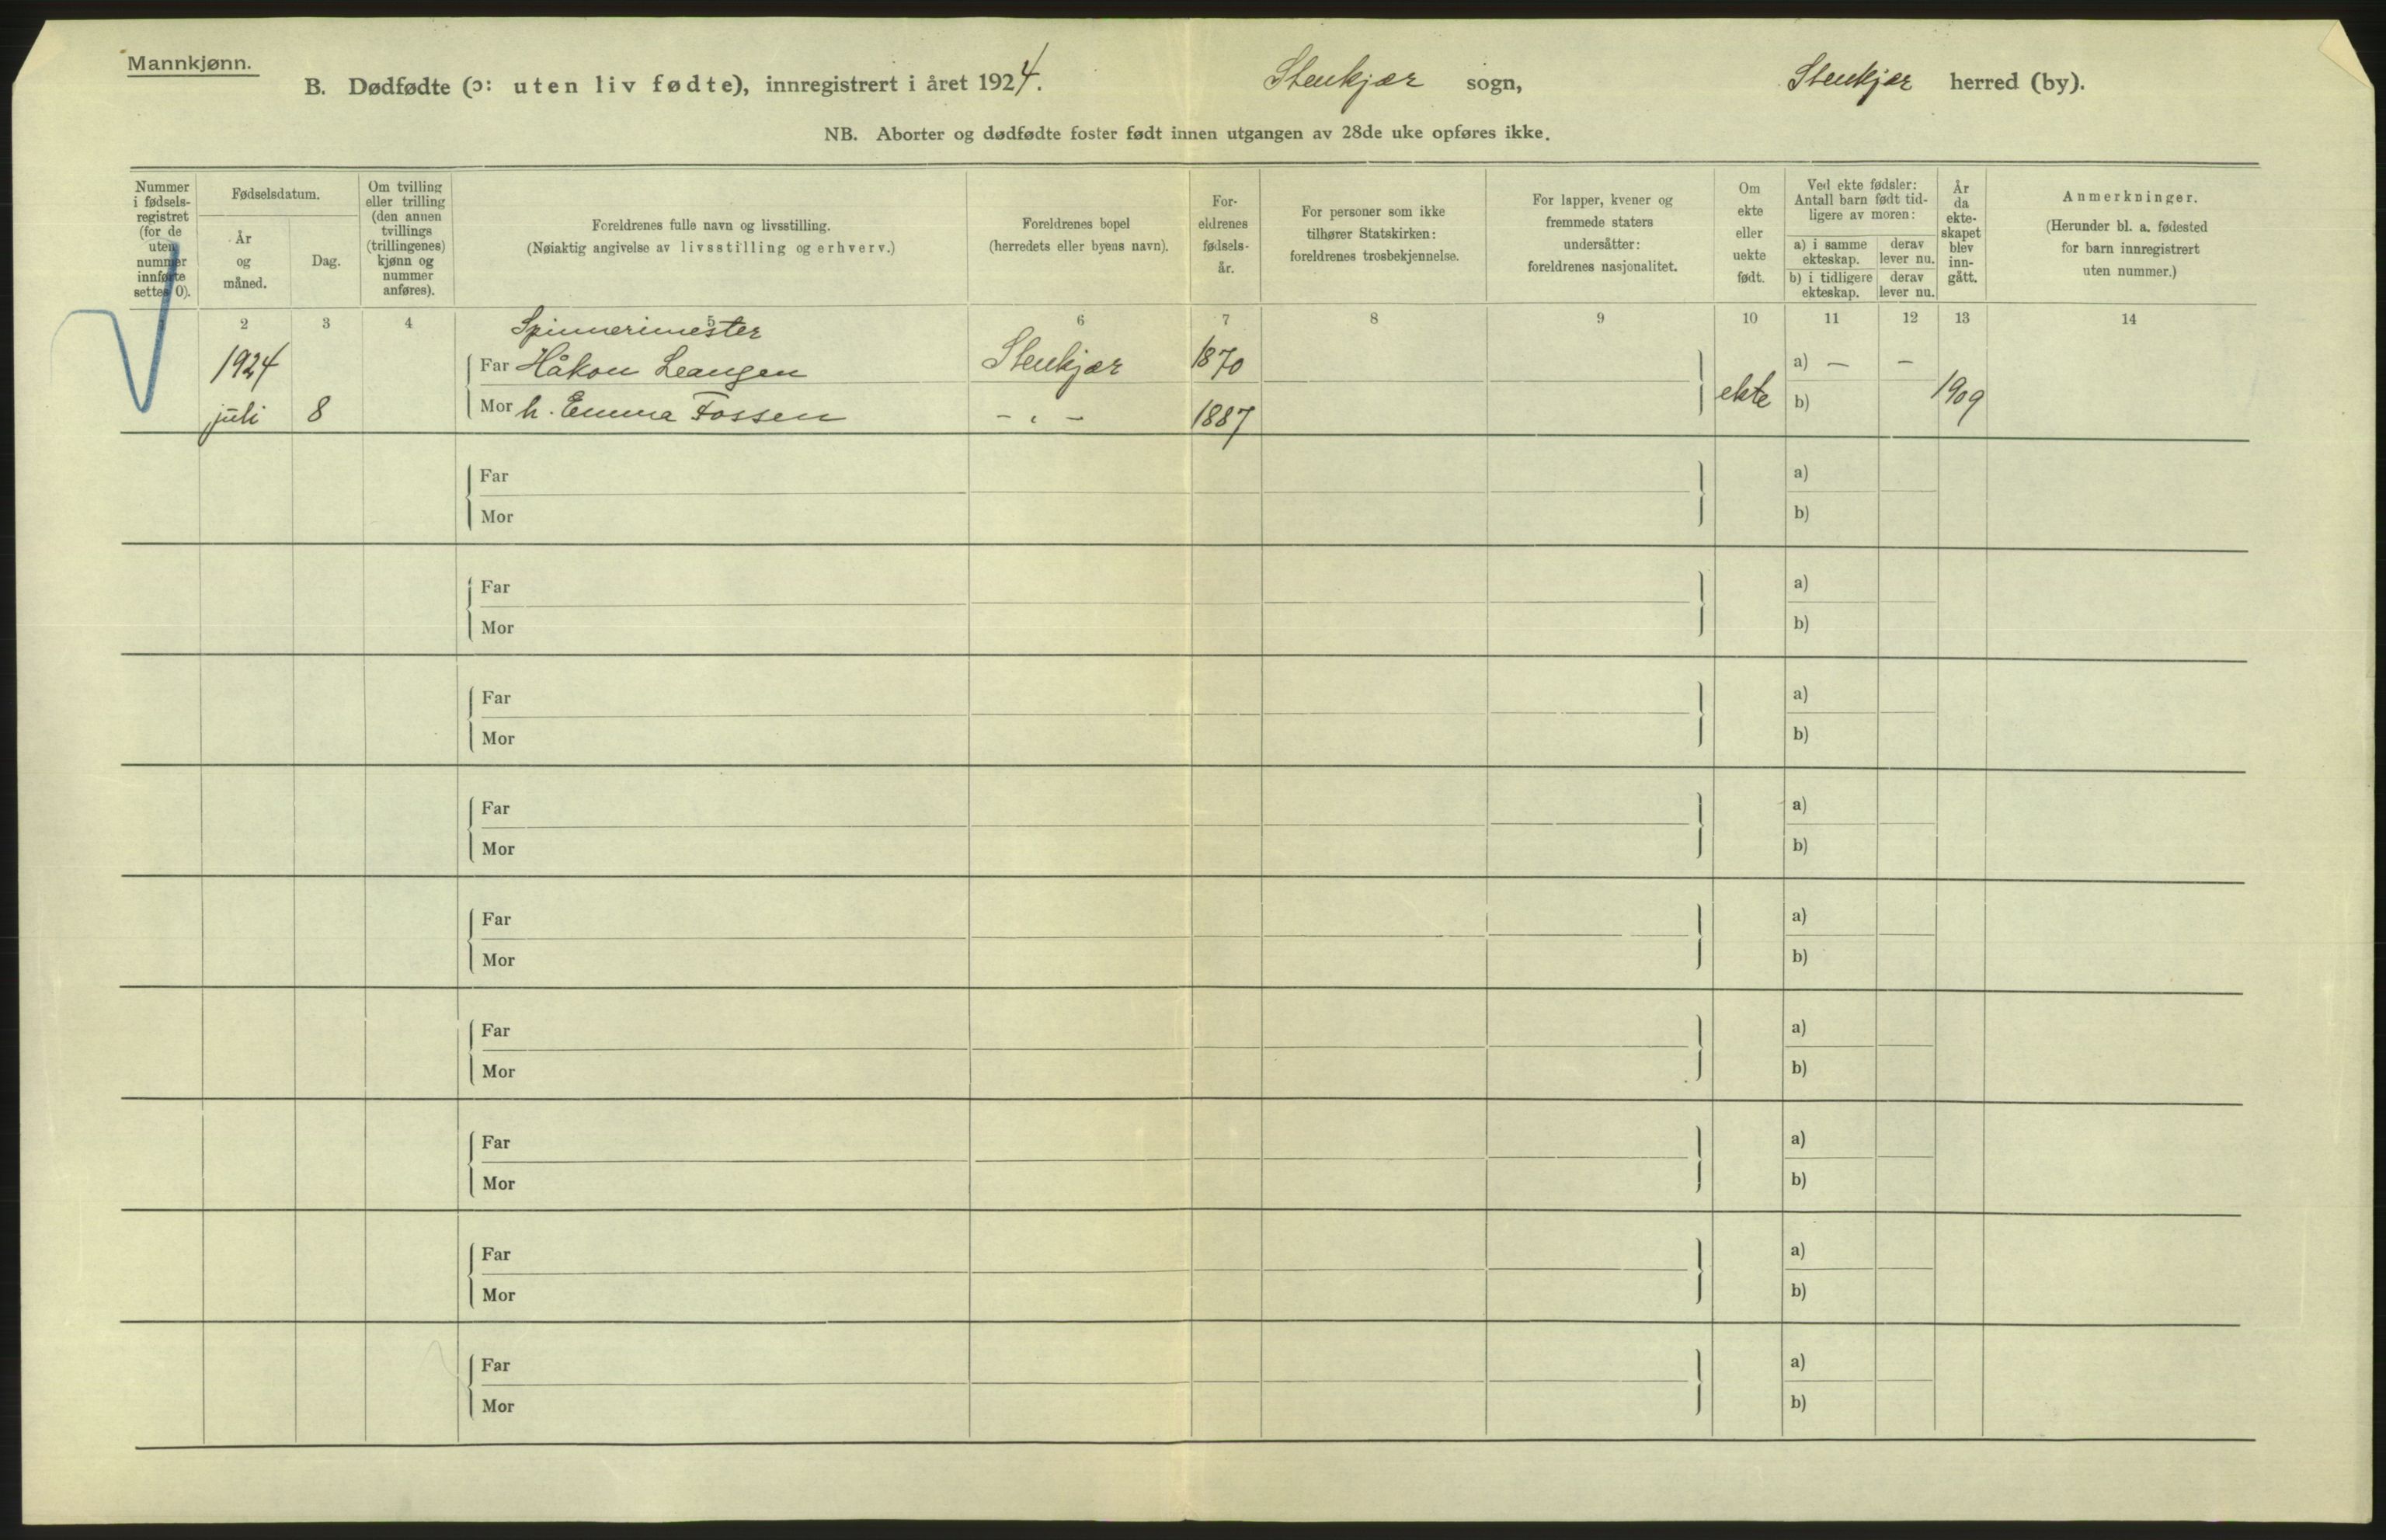 Mannkjønn.
B. Dødfødte (ɔ: uten liv fødte), innregistrert i året 1924. Stenkjær sogn, Stenkjær herred (by).
NB. Aborter og dødfødte foster født innen utgangen av 28de uke opføres ikke.
Nummer
i fødsels-
registret
(for de
uten
nummer
innførte
settes 0).
Fødselsdatum.
År
og
måned.
Dag.
Om tvilling
eller trilling
(den annen
tvillings
(trillingenes)
kjønn og
nummer
anføres).
Foreldrenes fulle navn og livsstilling.
(Nøiaktig angivelse av livsstilling og erhverv.)
Foreldrenes bopel
(herredets eller byens navn).
For-
eldrenes
fødsels-
år.
For personer som ikke
tilhører Statskirken:
foreldrenes trosbekjennelse.
For lapper, kvener og
fremmede staters
undersåtter:
foreldrenes nasjonalitet.
Om
ekte
eller
uekte
født.
Ved ekte fødsler:
Antall barn født tid-
ligere av moren:
a) i samme
ekteskap.
derav
lever nu.
b) i tidligere
ekteskap.
derav
lever nu.
År
da
ekte-
skapet
blev
inn-
gått.
Anmerkninger.
(Herunder bl. a. fødested
for barn innregistrert
uten nummer.)
1 2 3 4 5 6 7 8 9 10 11 12 13 14
Spinnerimester
1924 Far Håkon Leangen Stenkjær 1870 a) — —
juli 8 Mor h. Emma Fossen – „ – 1887 ekte b) 1909
Far a)
Mor b)
Far a)
Mor b)
Far a)
Mor b)
Far a)
Mor b)
Far a)
Mor b)
Far a)
Mor b)
Far a)
Mor b)
Far a)
Mor b)
Far a)
Mor b)